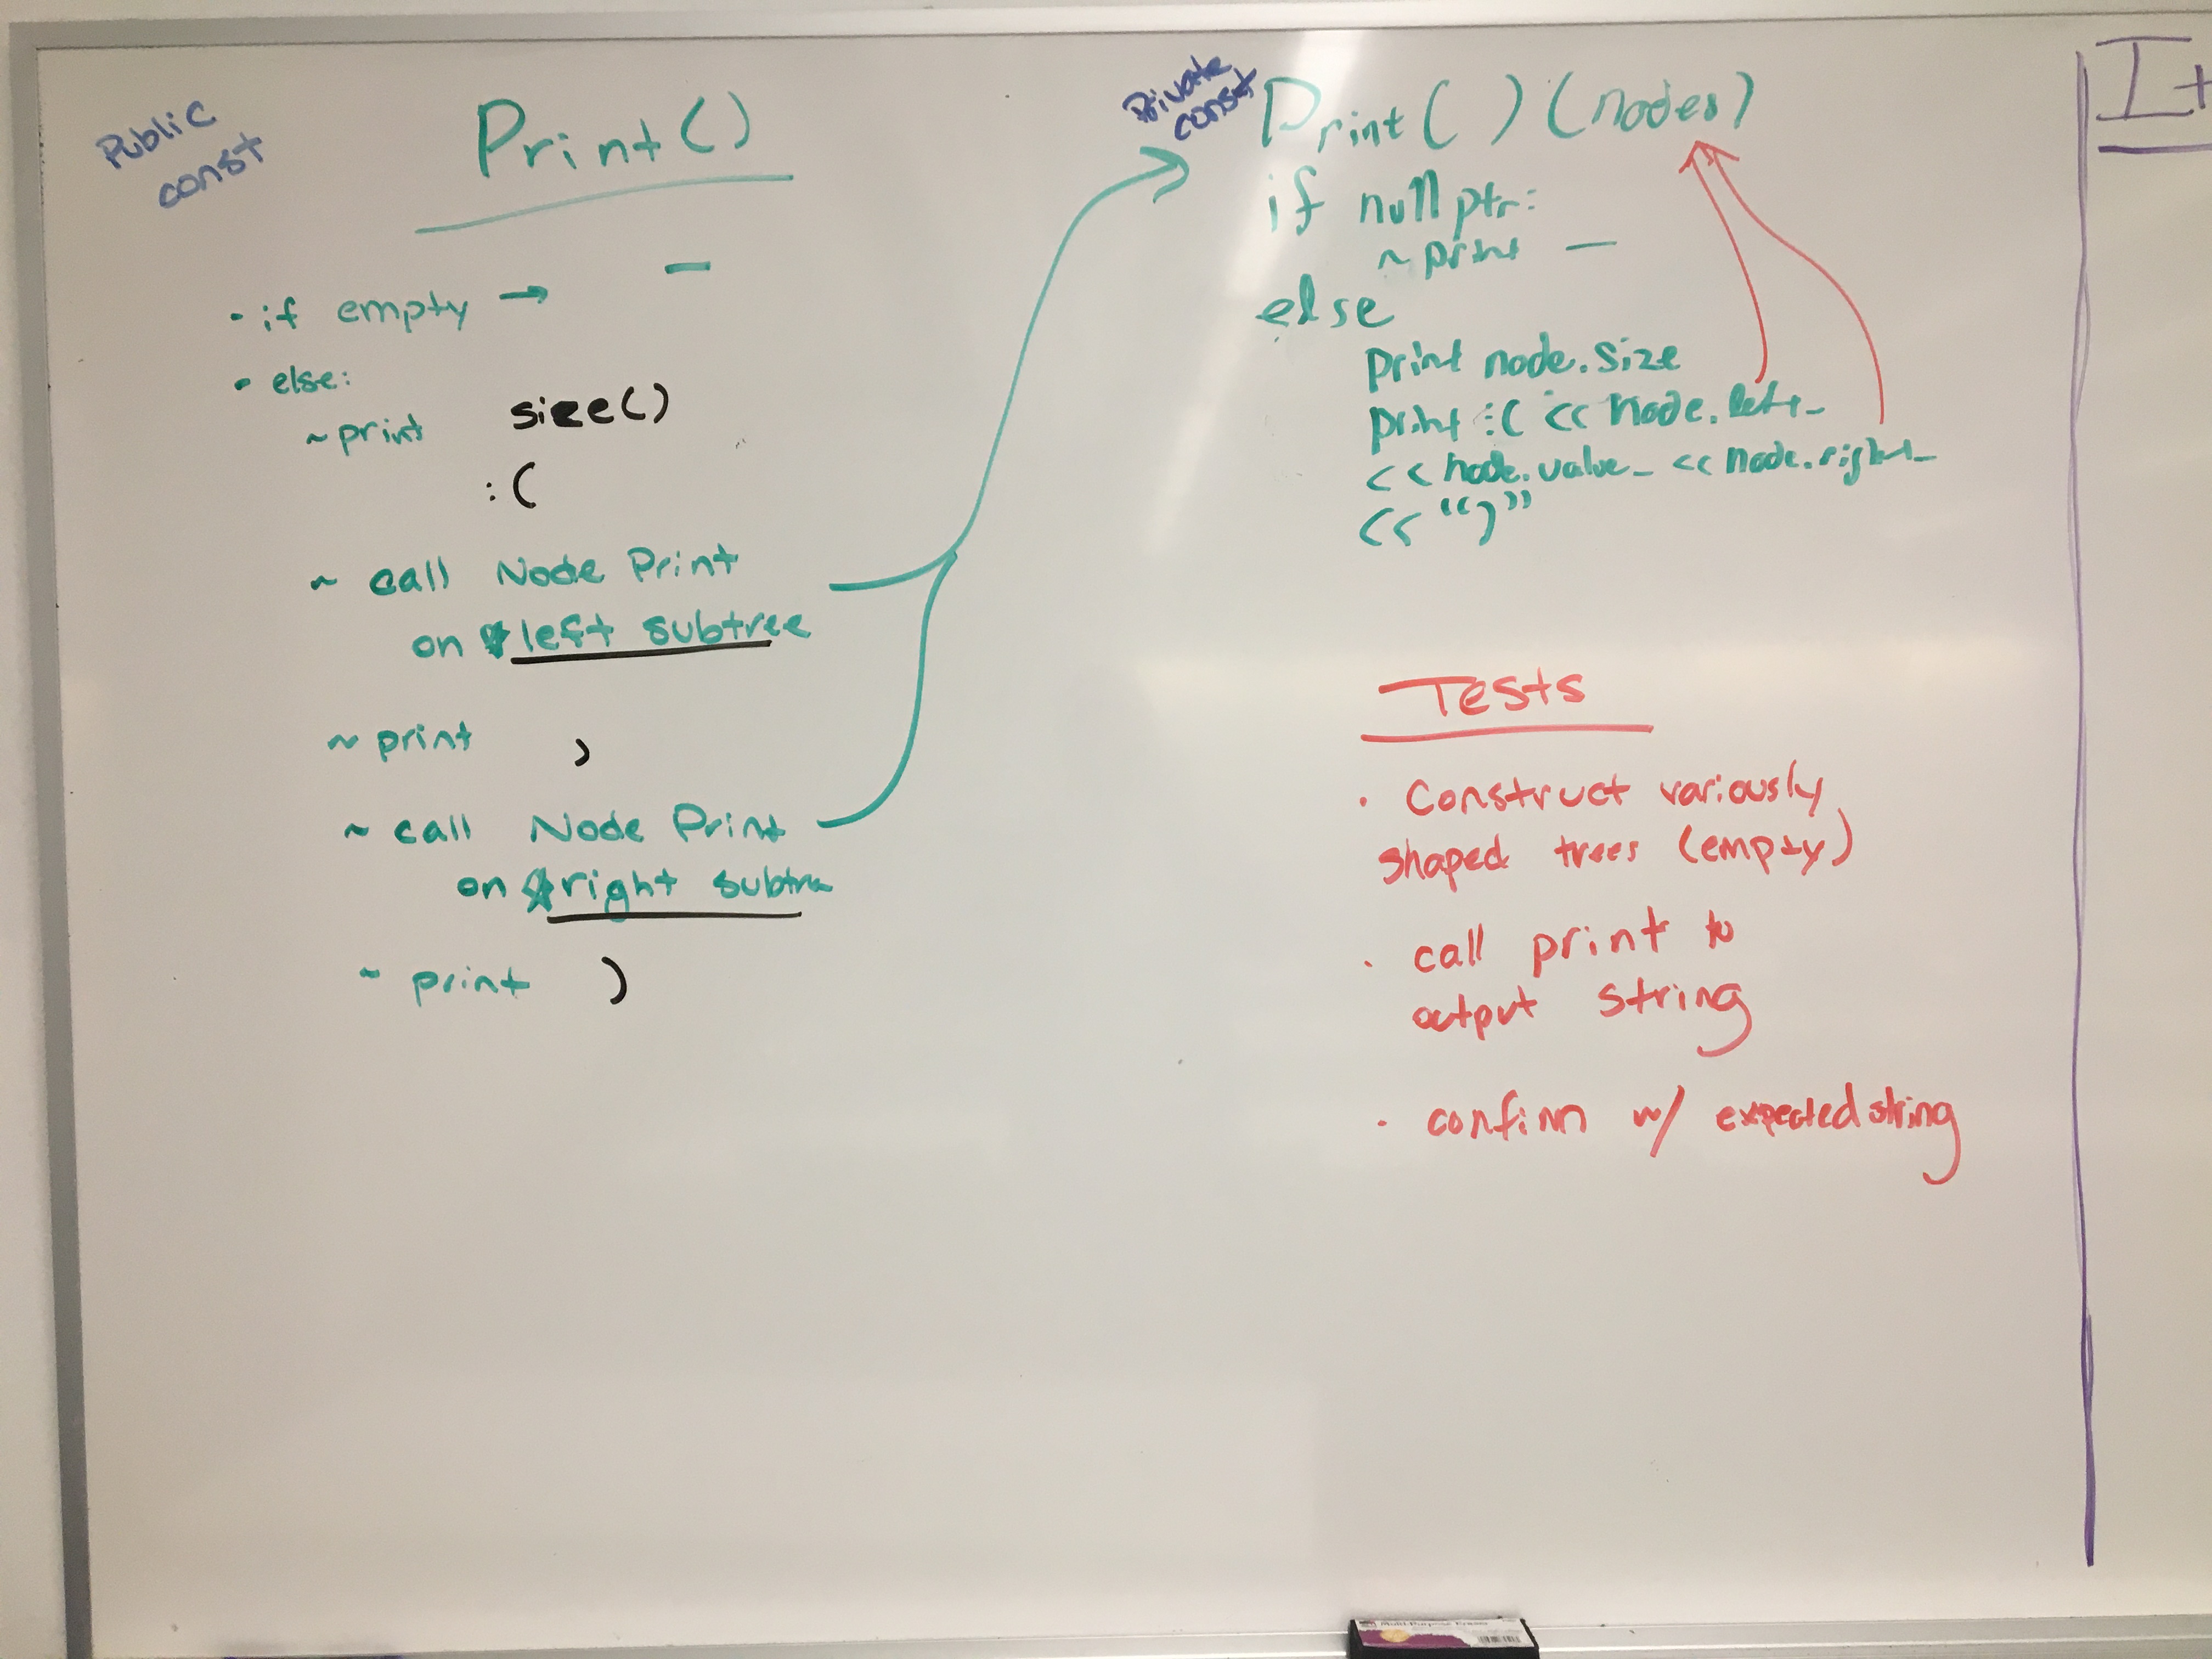 Public
const
Print()
· if empty → –
· else:
~ print size()
:(
~ call Node Print
on left subtree
~ print ,
~ call Node Print
on right subtree
~ print )
Private
const
Print( ) (nodes)
if nullptr:
~ print —
else
print node.size
print :( << node.left_
<< node.value_ << node.right_
<< ")"
Tests
· Construct variously
shaped trees (empty)
· call print to
output string
· confirm w/ expected string
It